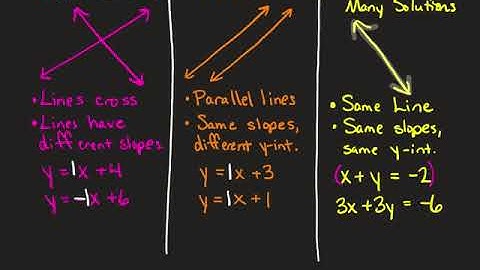 • Lines cross
• Lines have
different slopes
y = 1x + 4
y = -1x + 6
• Parallel lines
• Same slopes,
different y-int.
y = 1x + 3
y = 1x + 1
Many Solutions
• Same Line
• Same slopes,
same y-int.
(x + y = -2)
3x + 3y = -6